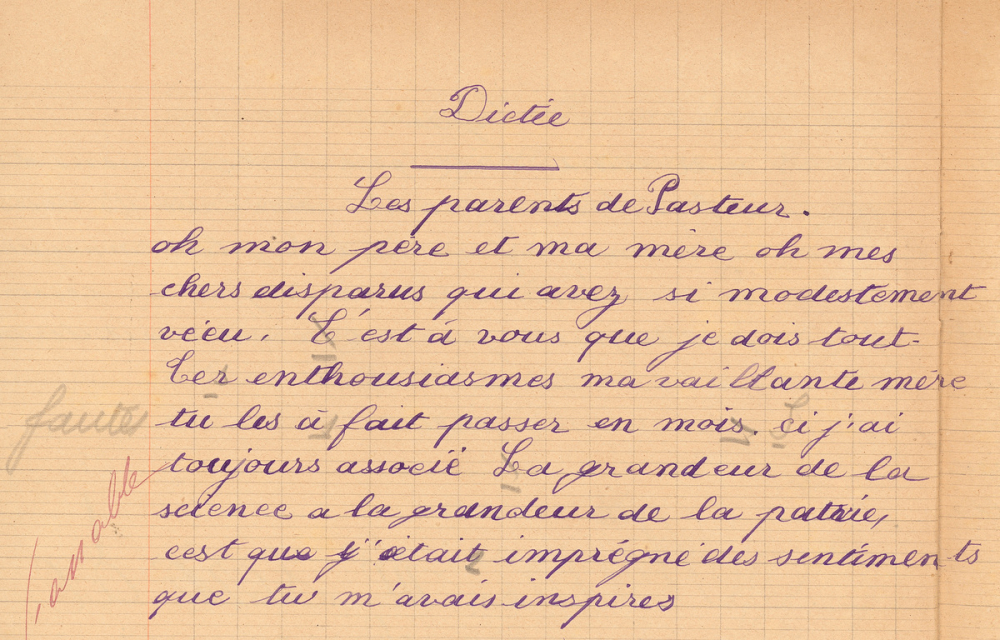 Dictée
Les parents de Pasteur.
oh mon père et ma mère oh mes
chers disparus qui avez si modestement
vécu. C'est à vous que je dois tout.
Tes enthousiasmes ma vaillante mère
tu les à fait passer en mois. ci j'ai
toujours associé La grandeur de la
science a la grandeur de la patrie,
cest que j'était imprégné des sentiments
que tu m'avais inspires
faute